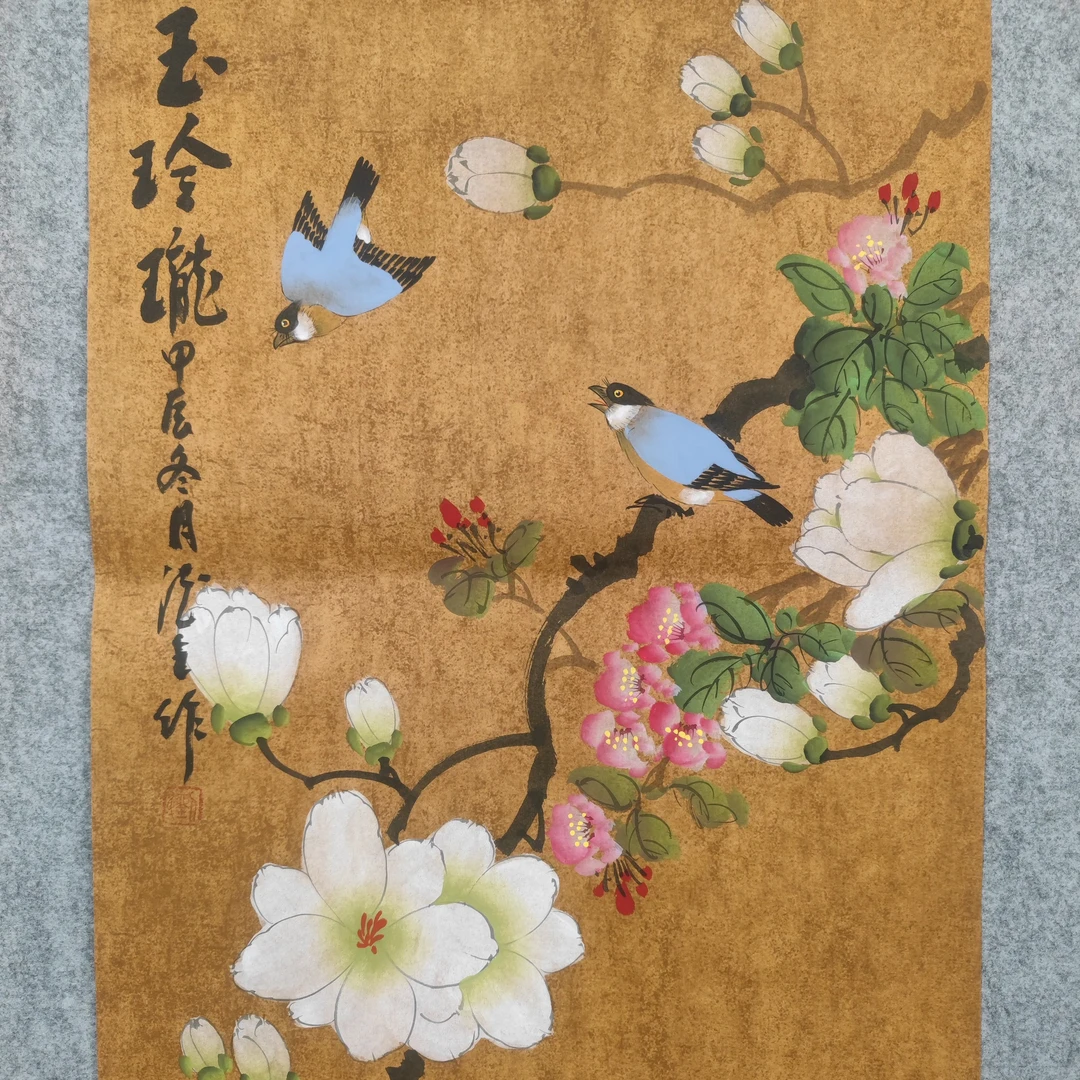 玉玲瓏甲辰冬月作